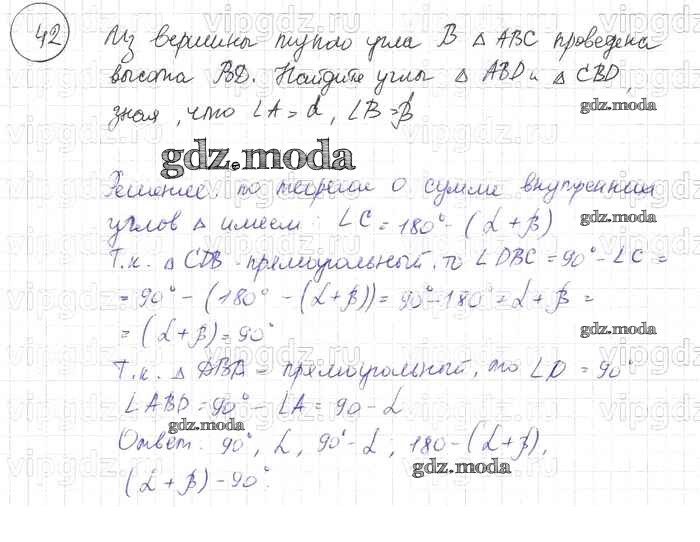 42
Из вершины тупого угла B △ ABC проведена
высота BD. Найдите углы △ ABD и △ CBD,
gdz.moda
зная, что ∠A = α, ∠B = β
gdz.moda
Решение. по теореме о сумме внутренних
углов △ имеем: ∠C = 180° - (α + β)
gdz.moda
Т.к. △ CDB - прямоугольный, то ∠DBC = 90° - ∠C =
= 90° - (180° - (α + β)) = 90° - 180° = α + β =
= (α + β) = 90°
gdz.moda
Т.к. △ DBA - прямоугольный, то ∠D = 90°
∠ABD = 90° - ∠A = 90 - α
gdz.moda
Ответ: 90°, α, 90° - α; 180 - (α + β),
gdz.moda
(α + β) - 90°.